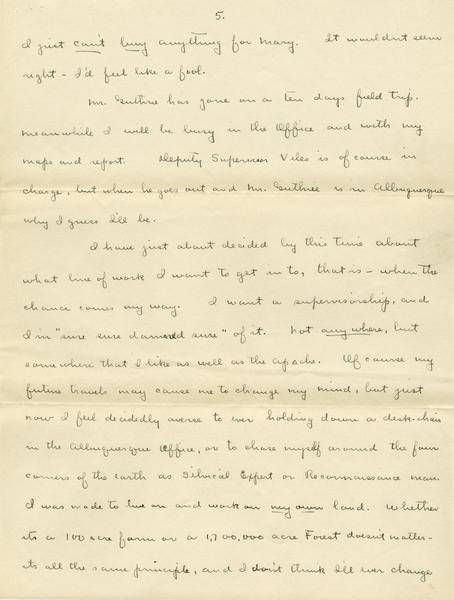 5.
I just can't buy anything for Mary. It wouldn't seem
right - I'd feel like a fool.
Mr. Guthrie has gone on a ten days field trip.
Meanwhile I will be busy in the Office and with my
maps and report. Deputy Supervisor Viles is of course in
charge, but when he goes out and Mr. Guthrie is in Albuquerque
why I guess I'll be.
I have just about decided by this time about
what line of work I want to get in to, that is - when the
chance comes my way. I want a supervisorship, and
I'm "sure sure damned sure" of it. Not anywhere, but
somewhere that I like as well as the Apache. Of course my
future travels may cause me to change my mind, but just
now I feel decidedly averse to ever holding down a desk-chair
in the Albuquerque Office, or to chase myself around the four
corners of the earth as Silvical Expert or Reconnaissance man.
I was made to live on and work on my own land. Whether
its a 100 acre farm or a 1,700,000 acre Forest doesn't matter -
its all the same principle, and I don't think I'll ever change